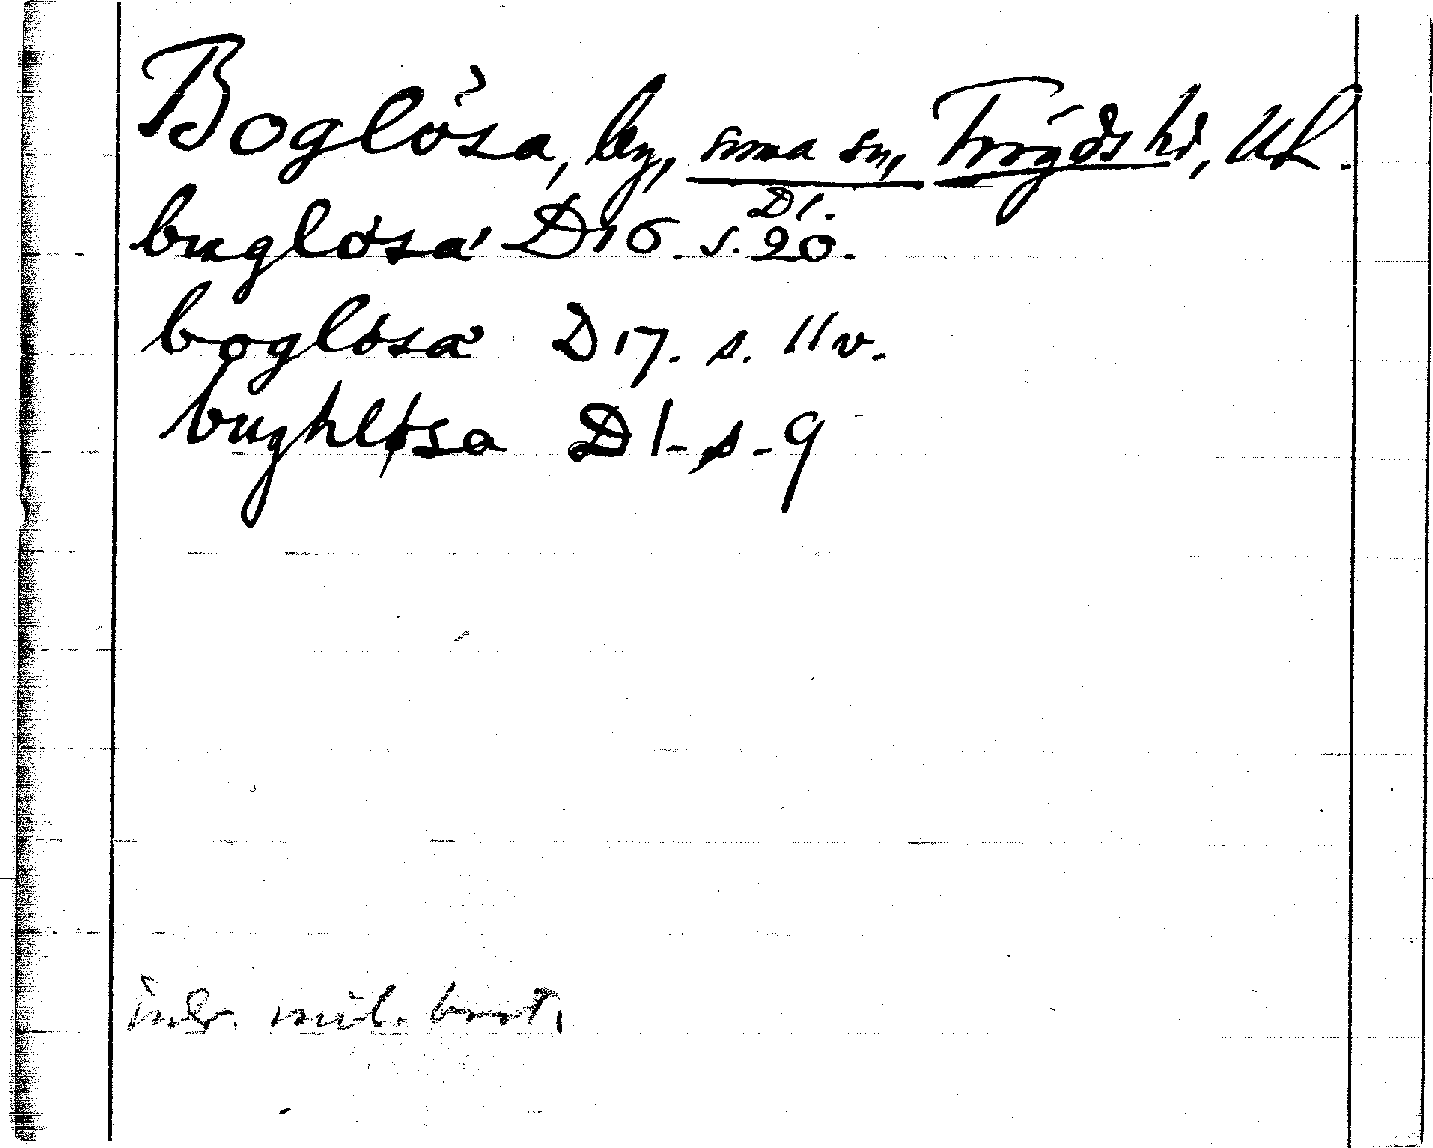 Boglösa, by, sma sn, Trögds hd, Upl.
buglösa D16. s. 20. D1.
boglösa D17. s. 11v.
bughløsa D1. s. 9